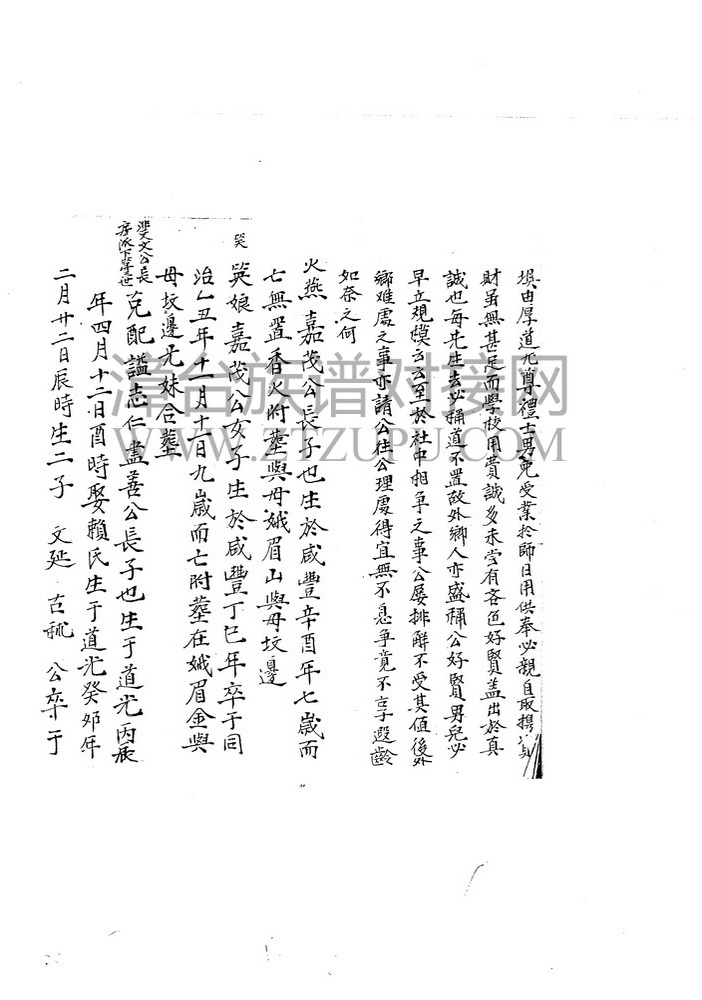 埧由厚道尤尊禮士男免受業於師日用供奉必親自取携
財虽無甚足而學校用費誠多未嘗有吝色好賢盖出於真
誠也每先生去必稱道不置故外鄉人亦盛稱公好賢男兒必
早立規模云云至於社中相爭之事公屡排解不受其值後外
鄉难處之事亦請公往公理處得宜無不息争竟不享遐齡
如奈之何
火燕嘉茂公長子也生於咸豐辛酉年七歲而
七無置香火附塟與母娥眉山與母坟邊
哭
哭娘嘉茂公女子生於咸豐丁巳年卒于同
治乙丑年十一月十二日九歲而亡附塟在娥眉金與
母坟邊尤妹合塟
斐文公長
房派下等世
克配謚志仁盡善公長子也生于道光丙辰
年四月十二日酉時娶賴氏生于道光癸卯年
二月廿二日辰時生二子 文延 古秕 公卒于
漳台族谱对接网
WWW.ZTZUPU.COM